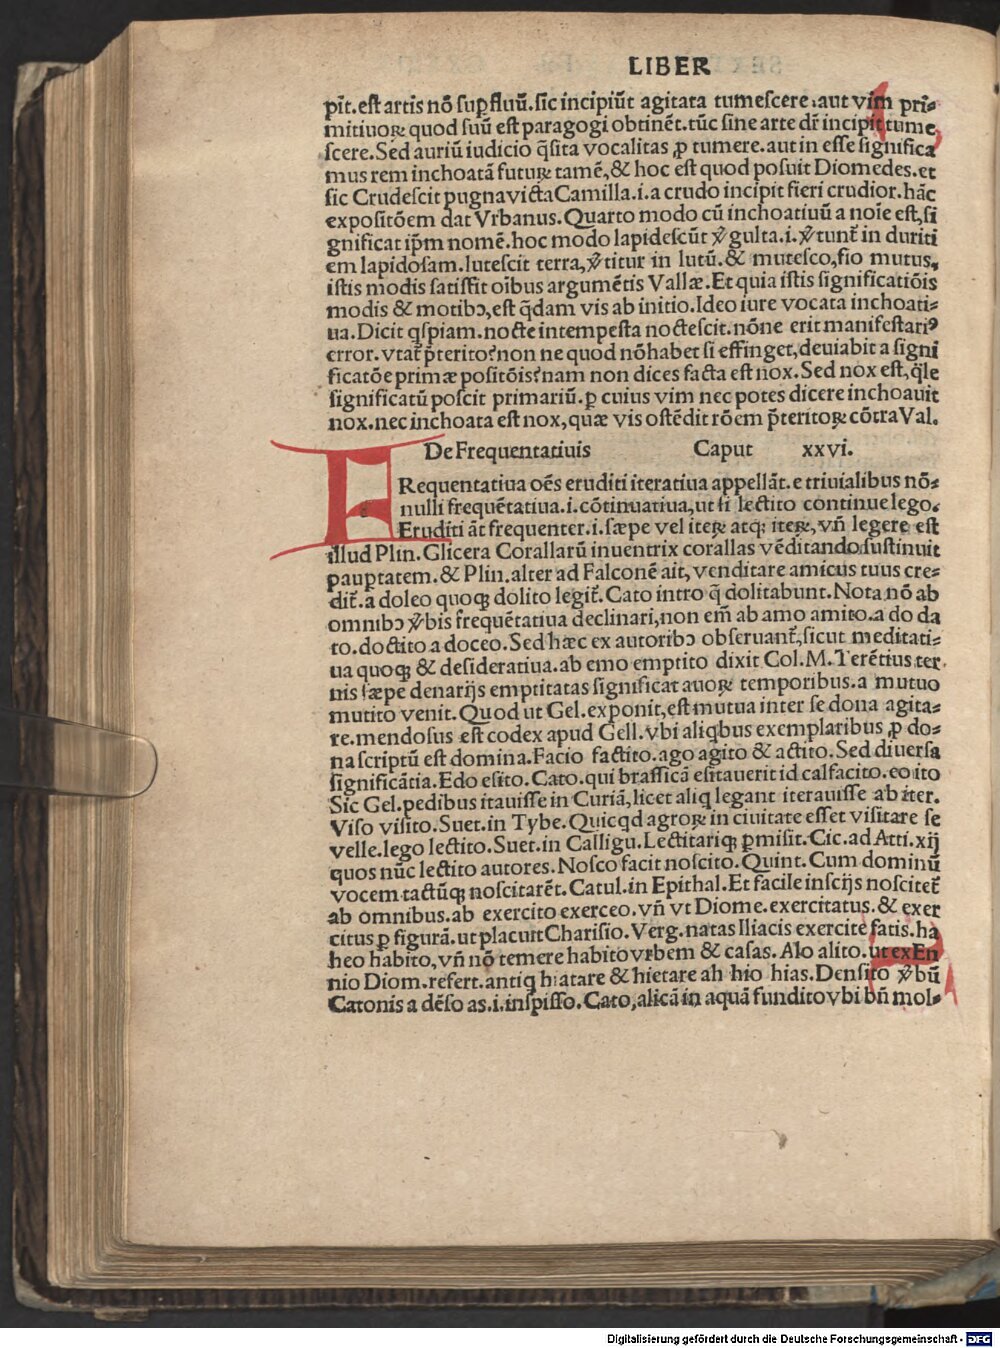 LIBER
pit̄. est artis nō sup̲fluū. sic incipiūt agitata tumescere: aut vim pri-
mitiuoꝝ quod suū est paragogi obtinēt. tūc sine arte dr̄ incipit tume
scere. Sed auriū iudicio q̄sita vocalitas ꝓ tumere. aut in esse significa
mus rem inchoatā futuꝝ tamē, & hoc est quod posuit Diomedes. et
sic Crudescit pugna victa Camilla. i. a crudo incipit fieri crudior. hāc
expositōem dat Vrbanus. Quarto modo cū inchoatiuū a noīe est, si
gnificat ip̄m nomē. hoc modo lapidescūt v̄gulta. i. v̄tunt̄ in duriti
em lapidosam. lutescit terra, v̄titur in lutū. & mutesco, fio mutus,
istis modis satisfit oībus argumētis Vallæ. Et quia istis significatiōis
modis & motibꝰ, est q̄dam vis ab initio. Ideo iure vocata inchoati-
ua. Dicit qspiam. nocte intempesta noctescit. nōne erit manifestariꝰ
error. vtat̄ p̄terito? non ne quod nō habet si effinget, deuiabit a signi
ficatōe primæ positōis? nam non dices facta est nox. Sed nox est, q̄le
significatū poscit primariū. ꝑ cuius vim nec potes dicere inchoauit
nox. nec inchoata est nox, quæ vis ostēdit rōem p̄teritoꝝ cōtra Val.
De Frequentatiuis Caput xxvi.
FRequentatiua oēs eruditi iteratiua appellāt. e triuialibus nō-
nulli frequētatiua. i. cōtinuatiua, ut si lectito continue lego.
Eruditi āt frequenter. i. sæpe vel iteꝝ atq; iteꝝ, vn̄ legere est
illud Plin. Glicera Corallarū inuentrix corallas vēditando sustinuit
pauptatem. & Plin. alter ad Falconē ait, venditare amicus tuus cre-
dit̄. a doleo quoqꝫ dolito legit̄. Cato intro q̄ dolitabunt. Nota nō ab
omnibꝰ v̄bis frequētatiua declinari, non em̄ ab amo amito. a do da
to. doctito a doceo. Sed hæc ex autoribꝰ obseruant̄, sicut meditati-
ua quoqꝫ & desideratiua. ab emo emptito dixit Col. M. Terētius ter
nis sæpe denarijs emptitatas significat auoꝝ temporibus. a mutuo
mutito venit. Quod ut Gel. exponit, est mutua inter se dona agita-
re. mendosus est codex apud Gell. vbi aliqbus exemplaribus ꝓ do-
na scriptū est domina. Facio factito. ago agito & actito. Sed diuersa
significātia. Edo esito. Cato. qui brassicā esitauerit id calfacito. eo ito
Sic Gel. pedibus itauisse in Curiā, licet aliq legant iterauisse ab iter.
Viso visito. Suet. in Tybe. Quicqd agroꝝ in ciuitate esset visitare se
velle. lego lectito. Suet. in Calligu. Lectitariqꝫ ꝑmisit. Cic. ad Atti. xij
quos nūc lectito autores. Nosco facit noscito. Quint. Cum dominū
vocem tactūqꝫ noscitarēt. Catul. in Epithal. Et facile inscijs noscitet̄
ab omnibus. ab exercito exerceo. vn̄ vt Diome. exercitatus. & exer
citus ꝑ figurā. ut placuit Charisio. Verg. natas Iliacis exercite fatis. ha
heo habito, vn̄ nō temere habito vrbem & casas. Alo alito. ut ex En
nio Diom. refert. antiq hiatare & hietare ah hio hias. Densito v̄bū
Catonis a dēso as. i. inspisso. Cato, alicā in aquā fundito vbi bn̄ mol-
Digitalisierung gefördert durch die Deutsche Forschungsgemeinschaft - DFG